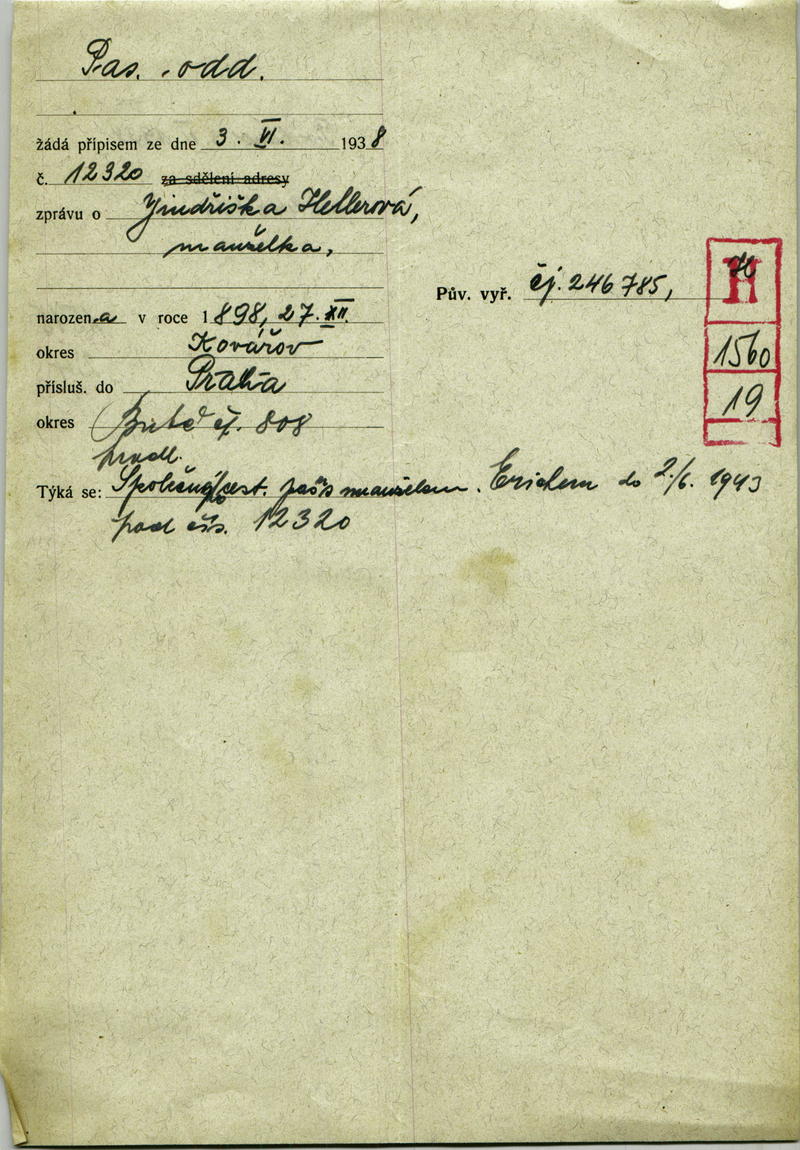 Pas. odd.
žádá přípisem ze dne 3. VI. 1938
č. 12320 za sdělení adresy
zprávu o Jindřiška Hellerová,
manželka,
Pův. vyř. čj. 246785,
H
1560
19
narozena v roce 1898, 27. XII.
okres Kovářov
přísluš. do Praha
okres čj. 808
prodl.
Týká se: Společný cest. pas s manželem Erichem do 2./6. 1943
pod čís. 12320